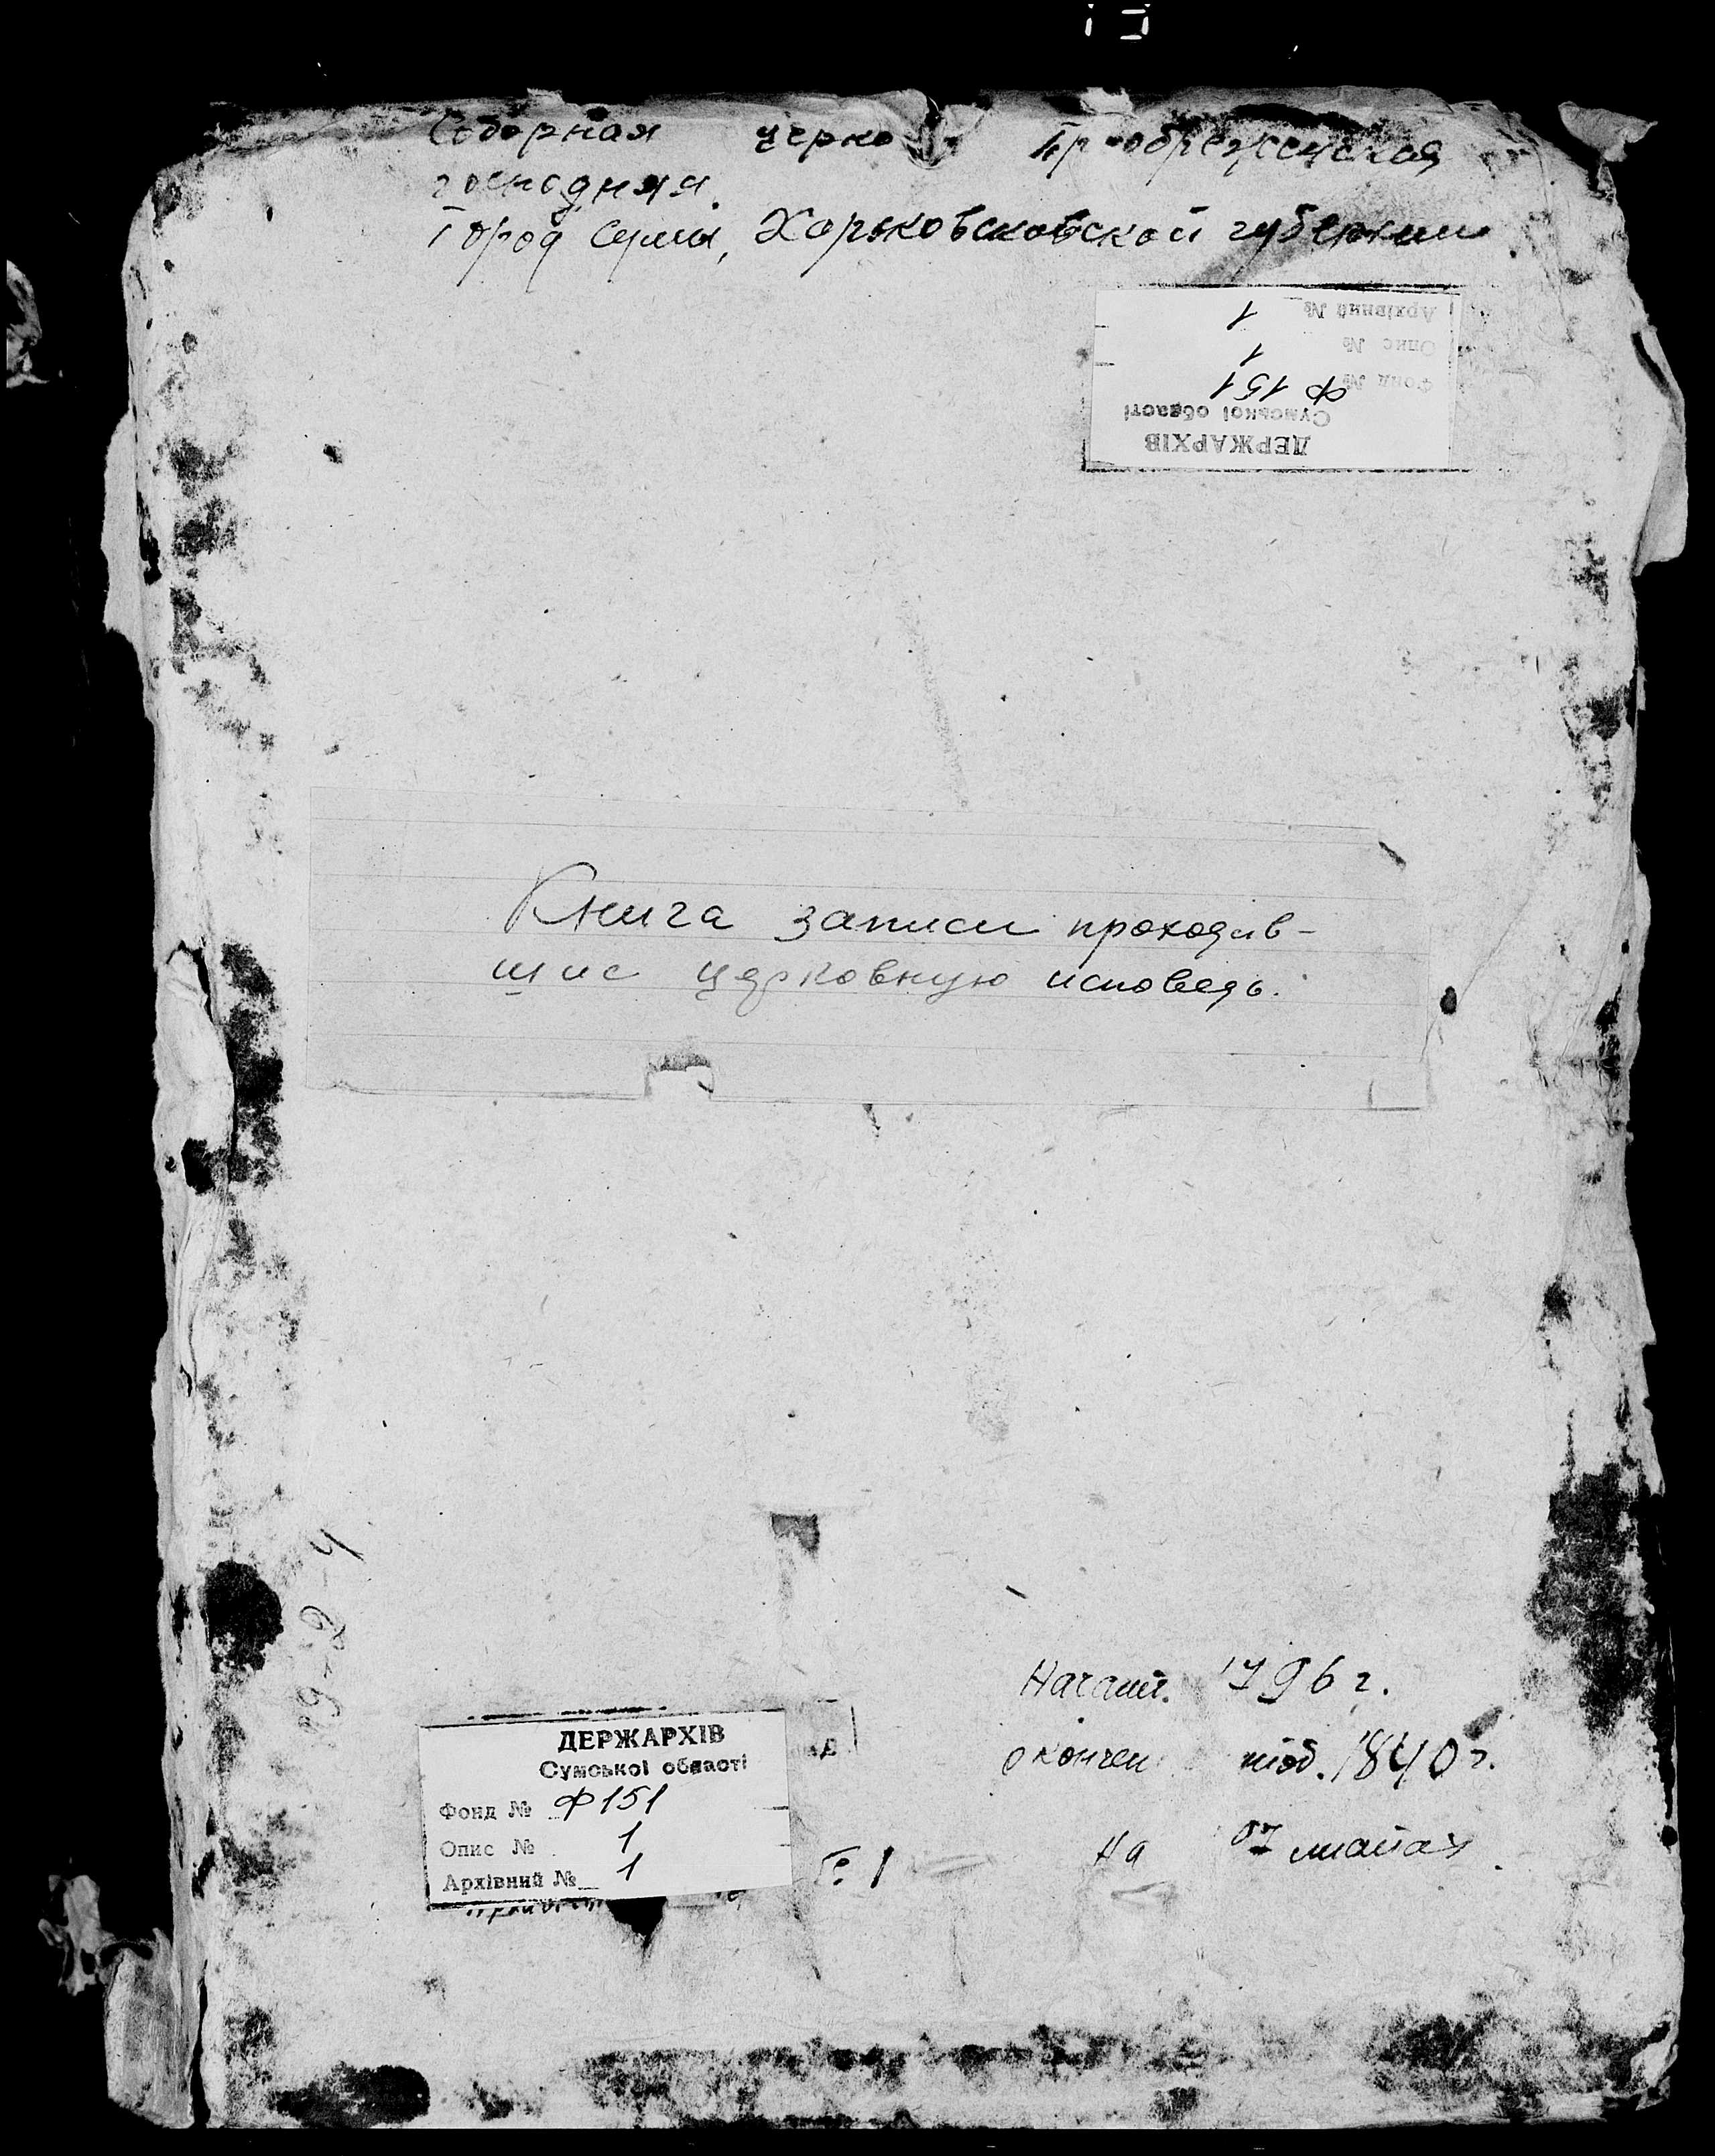 Соборная церко Преображенская
господняя.
Город Сумы, Харьковсковской губернии
Архівний № 1
Опис № 1
Фонд № Ф 151
Сумської області
ДЕРЖАРХІВ
Книга записи проходив-
шис церковную исповедь.
Начат. 1796 г.
окончен 1840 г.
На
ДЕРЖАРХІВ
Сумської області
Фонд № Ф 151
Опис № 1
Архівний № 1